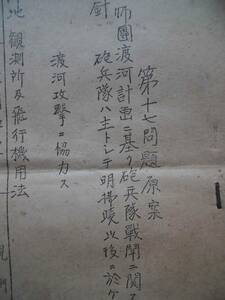 第十七問題原案
師團渡河計画ニ基ク砲兵隊戦闘ニ関ス
針
砲兵隊ハ主トシテ明拂暁以後ニ於ケ
渡河攻撃ニ協力ス
地観測所及飛行機用法